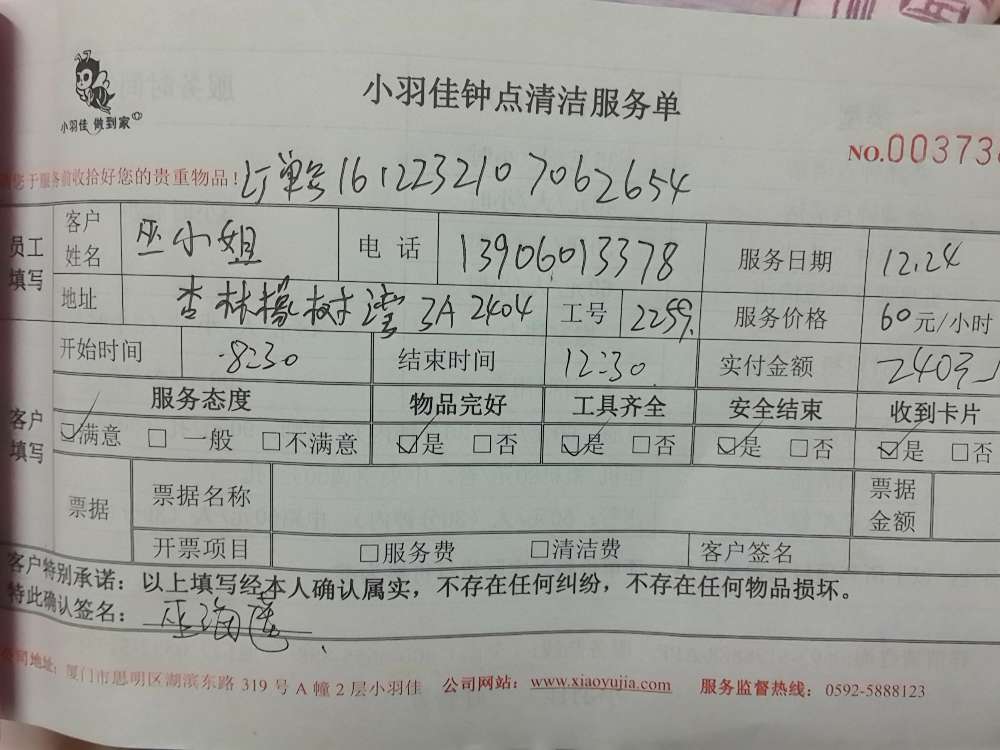 小羽佳 做到家
小羽佳钟点清洁服务单
NO.003734
您于服务前收拾好您的贵重物品！订单号16122321070 62654
员工填写 客户姓名 巫小姐 电话 13906013378 服务日期 12.24
地址 杏林橡树湾3A 2404 工号 2259. 服务价格 60元/小时
客户填写 开始时间 8:30 结束时间 12:30. 实付金额 240
服务态度 物品完好 工具齐全 安全结束 收到卡片
☑满意 □一般 □不满意 ☑是 □否 ☑是 □否 ☑是 □否 ☑是 □否
票据 票据名称 票据金额
开票项目 □服务费 □清洁费 客户签名
客户特别承诺：以上填写经本人确认属实，不存在任何纠纷，不存在任何物品损坏。
特此确认签名：巫海
公司地址：厦门市思明区湖滨东路 319 号 A 幢 2 层小羽佳 公司网站：www.xiaoyujia.com 服务监督热线：0592-5888123